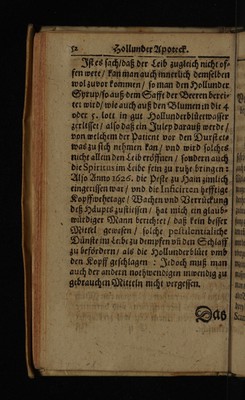 52 Hollunder Apoteck.
Ist es sach/daß der Leib zugleich nicht of-
fen were/ kan man auch innerlich demselben
wol zuvor kommen/ so man den Hollunder
Syrup/so auß dem Saffte der Beeren berei-
tet wird/ wie auch auß den Blumen in die 4
oder 5. lott in gut Hollunderblüetwasser
zerlisset/ also daß ein Julep darauß werde/
von welchem der Patient vor den Durst etz
was zu sich nehmen kan/ vnd wird solches
nicht allem den Leib eröffnen/ sondern auch
die Spiritus im Leibe fein zu ruhe bringen:
Also Anno 1626. die Peste zu Hain zimlich
eingerissen war/ vnd die Inficirten hefftige
Kopffwehetage/ Wachen vnd Verrückung
deß Häuptes zustiessen/ hat mich ein glaub-
würdiger Mann berichtet/ daß kein besser
Mittel gewesen/ solche pestilentzialische
Dünste im Leibe zu dempfen vñ den Schlaff
zu befördern/ als die Hollunderblüet vmb
den Kopff geschlagen: Jedoch muß man
auch der andern nothwendigen inwendig zu
gebrauchen Mitteln nicht vergessen.
Das